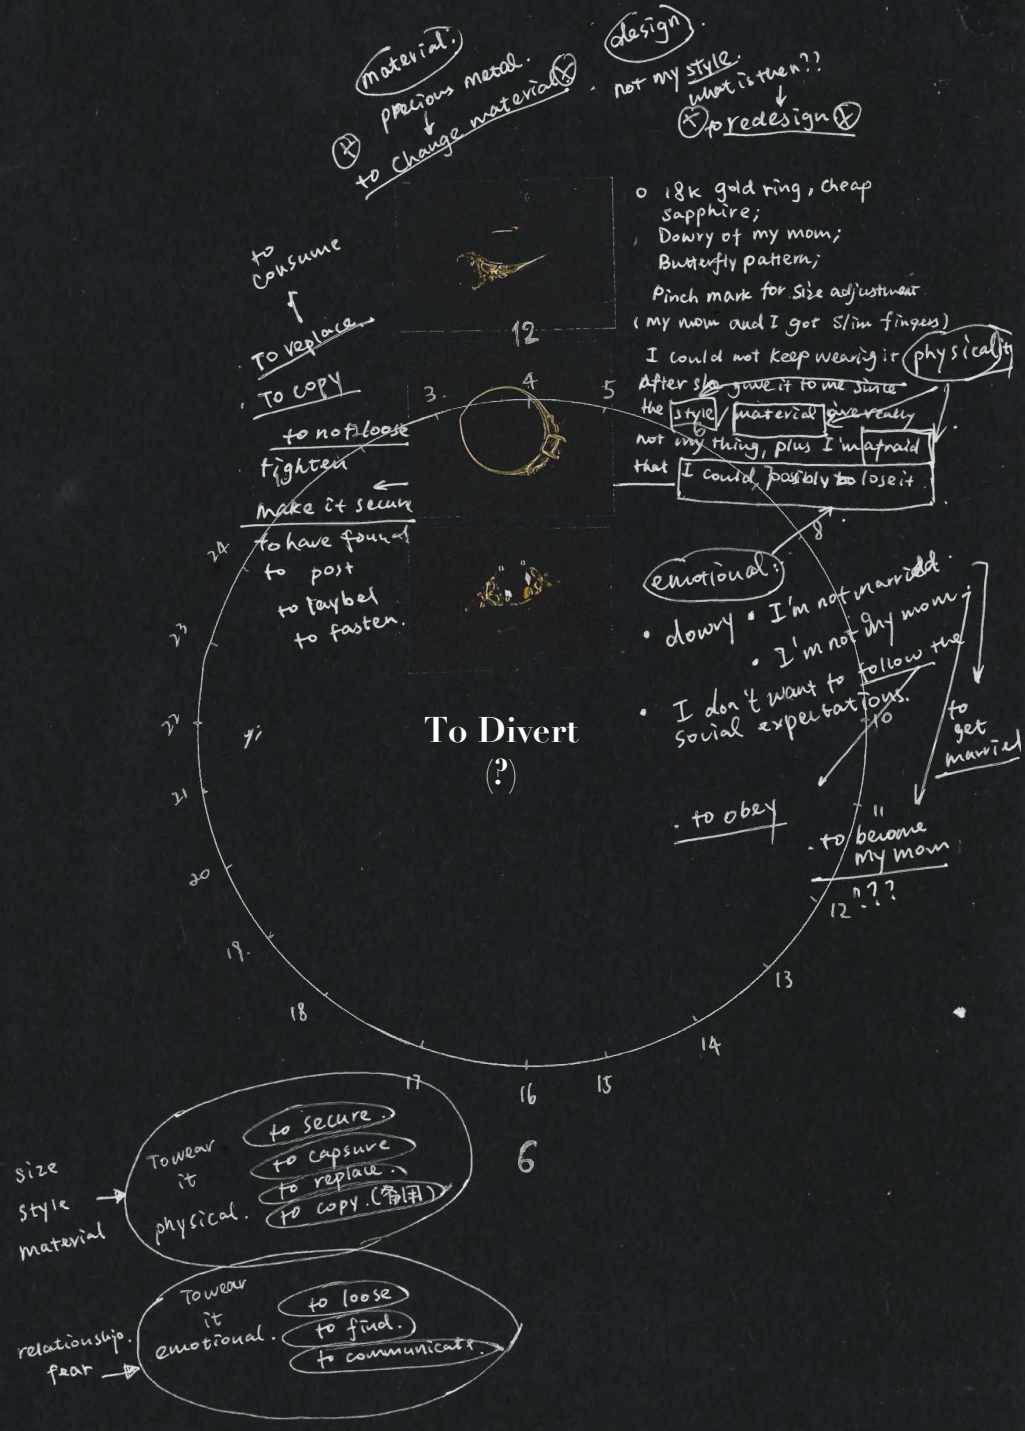 material.
precious metal.
to change material.
design.
not my style.
what is then??
to redesign
o 18k gold ring, cheap
sapphire;
Dowry of my mom;
Butterfly pattern;
Pinch mark for size adjustment
(my mom and I got slim fingers)
I could not keep wearing it
physicality
After she gave it to me since
the style / material
really
not my thing, plus I'm afraid
that I could possibly to lose it.
to
consume
To replace.
To copy
to not loose
tighten
make it secure
to have found
to post
to
to fasten.
12
3
4
5
6
8
10
11
12
13
14
15
16
17
18
19.
20
21
22
23
24
6
emotional:
• dowry • I'm not married.
• I'm not my mom.
• I don't want to follow the
social expectations.
to
get
married
. to obey
. to become
my mom
???
To Divert
(?)
size
style
material
To wear
it
physical.
to secure.
to capsure
to replace.
to copy. (备用)
relationship.
fear
To wear
it
emotional.
to loose
to find.
to communicate.